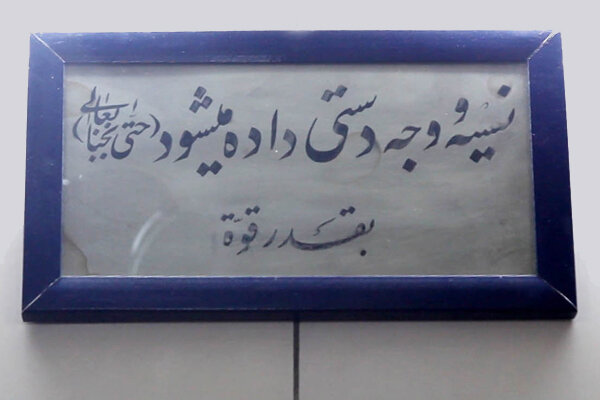 نسیه و وجه دستی داده میشود (حتی بجنابعالی)
بقدر قوّة